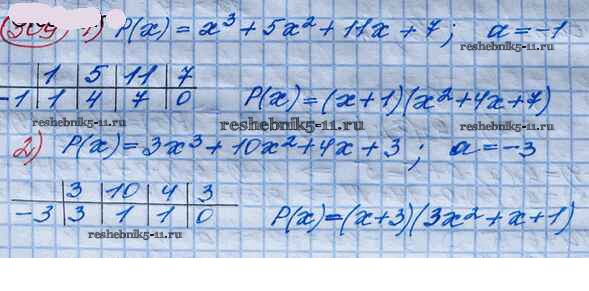 1) P(x) = x³ + 5x² + 11x + 7; a = -1
1 | 5 | 11 | 7
-1 | 1 | 4 | 7 | 0 P(x) = (x+1)(x²+4x+7)
reshebnik5-11.ru reshebnik5-11.ru
reshebnik5-11.ru
2) P(x) = 3x³ + 10x² + 4x + 3; a = -3
3 | 10 | 4 | 3
-3 | 3 | 1 | 1 | 0 P(x) = (x+3)(3x² + x + 1)
reshebnik5-11.ru reshebnik5-11.ru